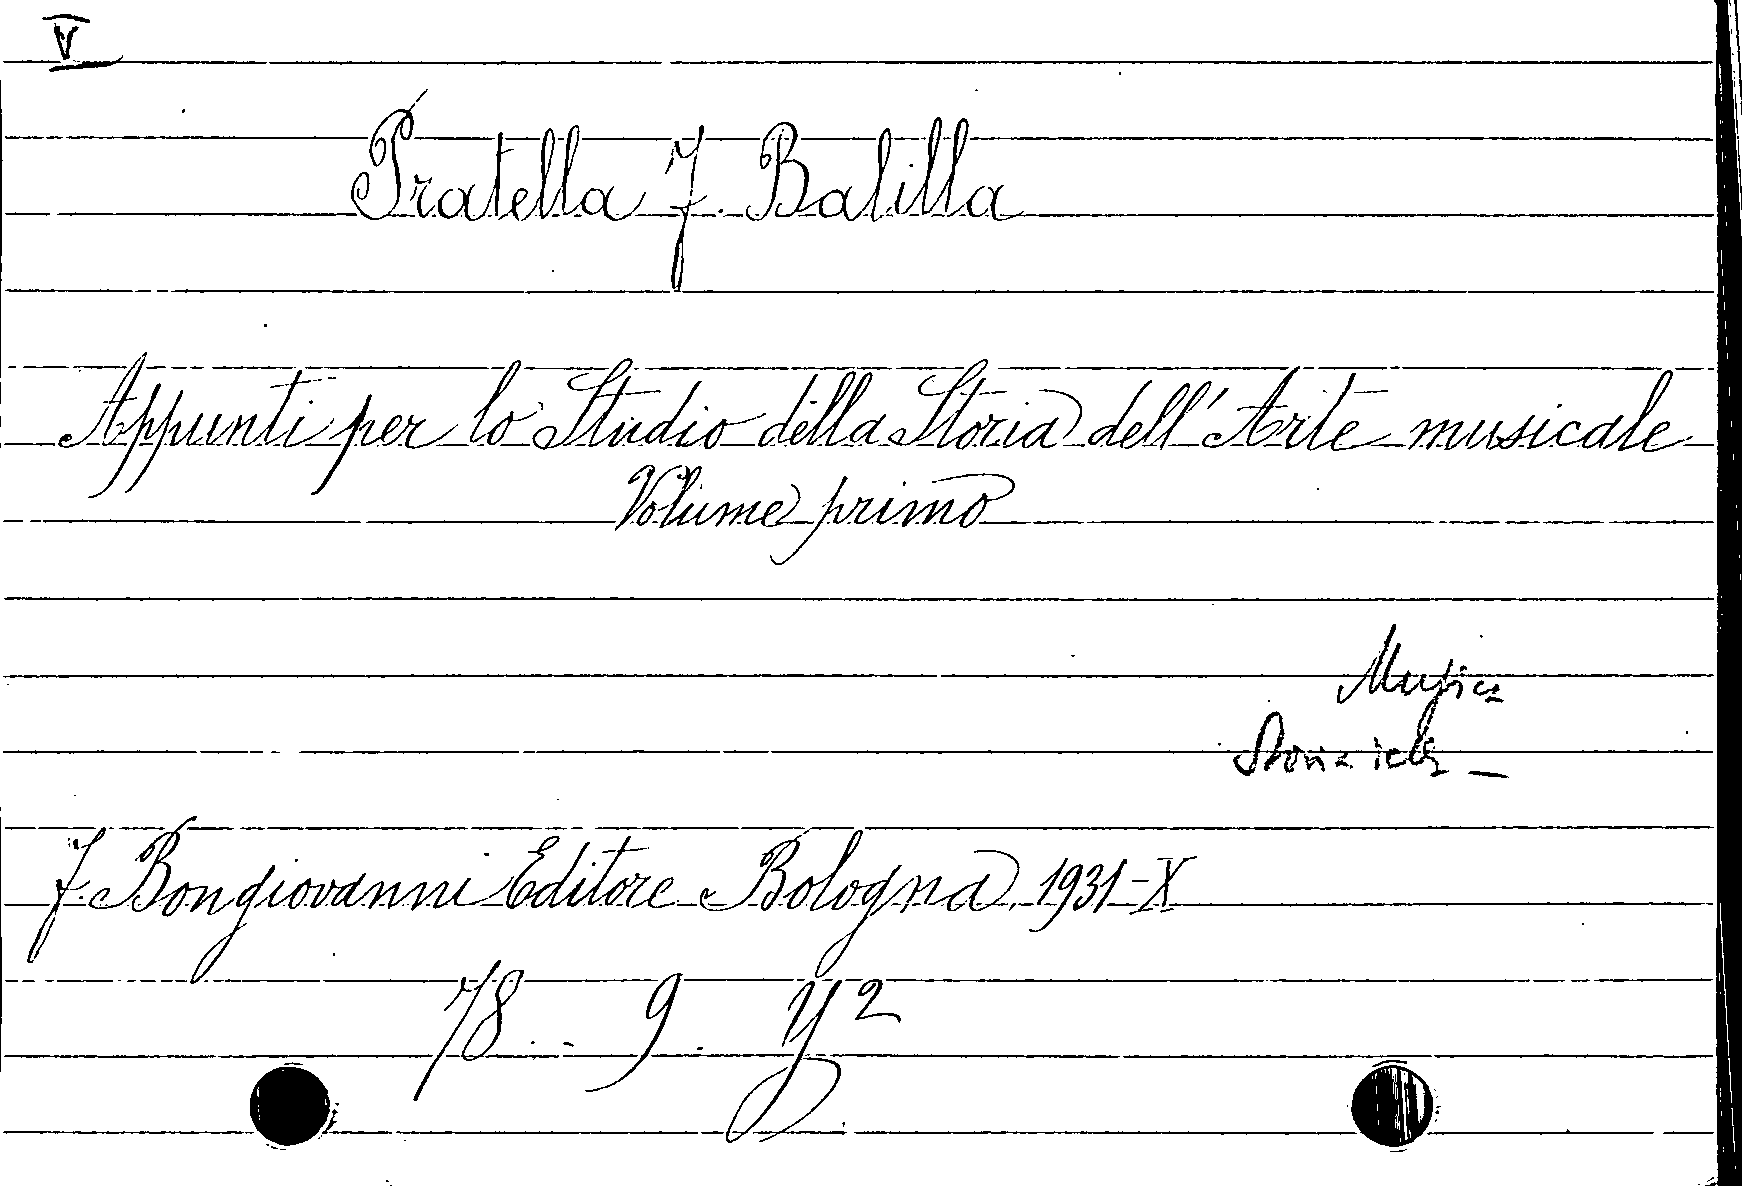 V
Pratella F. Balilla
Appunti per lo Studio della Storia dell'Arte musicale
Volume primo
Musica
Storia della
F. Bongiovanni Editore Bologna 1931-X
78 . 9 . Y2